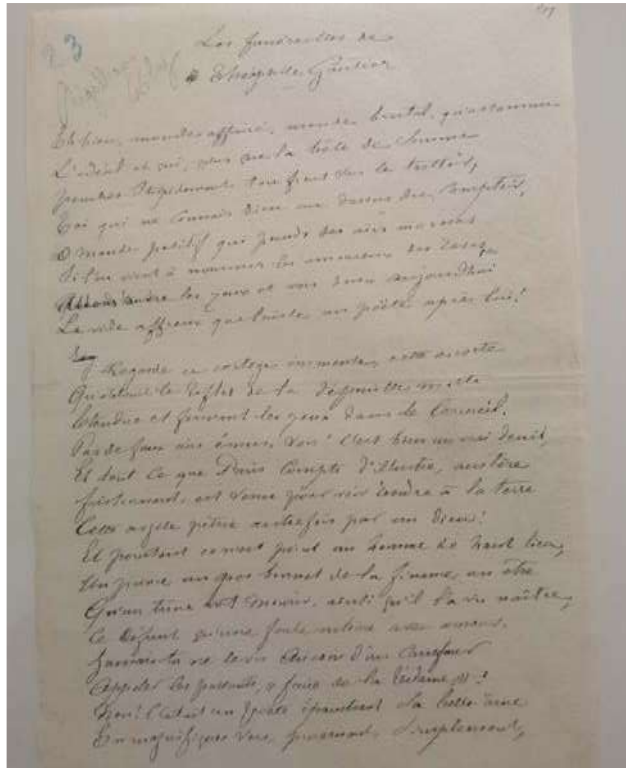 23
Les funérailles de
Théophile Gautier
Eh bien, monde affairé, monde brutal, qu'assomme
L'idéal et qui, plus que la bête de Somme
stupidement ton front sur le trottoir,
Toi qui ne Connais dieu que dessus des Comptoir,
O monde positif qui prends des airs moroses
Si l'on vient à nommer les amoureux des roses,
ouvre les yeux et vois bien aujourdhui
Le vide affreux que laisse un poëte après lui!
Regarde ce cortège immense, cette escorte
de la dépouille morte
Etendue et fermant les yeux dans le Cercueil.
Pas de faux airs émus, Vois! C'est bien un vrai deuil,
Et tout Ce que Paris Compte d'illustre, austère
est venu pour voir rendre à la terre
Cette argile pétrie autrefois par un Dieu!
Et pourtant ce n'est point un homme de haut lieu,
Un prince un gros bonnet de la finance, un être
Qu'un trône voit mourir, ainsi qu'il l'a vu naître,
Ce défunt qu'une foule entoure avec amour.
Jamais tu ne le vis Au coin d'un Carrefour
Appeler les passants, & faire de la réclame
Non! C'était un poëte épanchant sa belle âme
En magnifiques vers, purement, simplement,